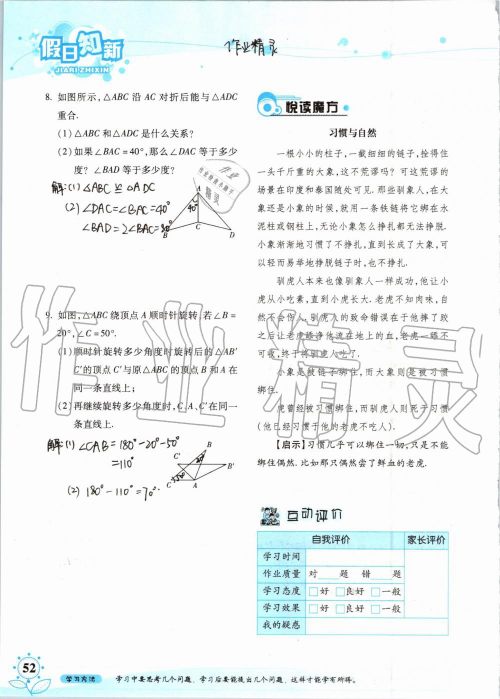 假日知新
JIARI ZHIXIN
作业精灵
8. 如图所示,△ABC 沿 AC 对折后能与△ADC
重合.
(1)△ABC 和△ADC 是什么关系?
(2)如果∠BAC=40°,那么∠DAC 等于多少
度? ∠BAD 等于多少度?
解:(1) △ABC ≌ △ADC
(2) ∠DAC=∠BAC=40°
∠BAD=2∠BAC=80°
A
40°
B
C
D
9. 如图,△ABC 绕顶点 A 顺时针旋转.若∠B=
20°,∠C=50°.
(1)顺时针旋转多少角度时旋转后的△AB′
C′的顶点 C′与原△ABC 的顶点 B 和 A 在
同一条直线上;
(2)再继续旋转多少角度时,C、A、C′在同一
条直线上.
解:(1) ∠CAB=180°-20°-50°
=110°
(2) 180°-110°=70°.
B
C′
B′
C
A
悦读魔方
习惯与自然
一根小小的柱子,一截细细的链子,拴得住
一头千斤重的大象,这不荒谬吗? 可这荒谬的
场景在印度和泰国随处可见. 那些驯象人,在大
象还是小象的时候,就用一条铁链将它绑在水
泥柱或钢柱上,无论小象怎么挣扎都无法挣脱.
小象渐渐地习惯了不挣扎,直到长成了大象,可
以轻而易举地挣脱链子时,也不挣扎.
驯虎人本来也像驯象人一样成功,他让小
虎从小吃素,直到小虎长大. 老虎不知肉味,自
然不会伤人. 驯虎人的致命错误在于他摔了跤
之后让老虎舔净他流在地上的血,老虎一舔不
可收,终于将驯虎人吃了.
小象是被链子绑住,而大象则是被习惯
绑住.
虎曾经被习惯绑住,而驯虎人则死于习惯
(他已经习惯于他的老虎不吃人).
【启示】习惯几乎可以绑住一切,只是不能
绑住偶然. 比如那只偶然尝了鲜血的老虎.
互动评价
自我评价 家长评价
学习时间
作业质量 对 题 错 题
学习态度 □好 □良好 □一般
学习效果 □好 □良好 □一般
我的疑惑
52
学习方法 学习中要思考几个问题,学习后要能提出几个问题,这样才能学有所得.
作业精灵